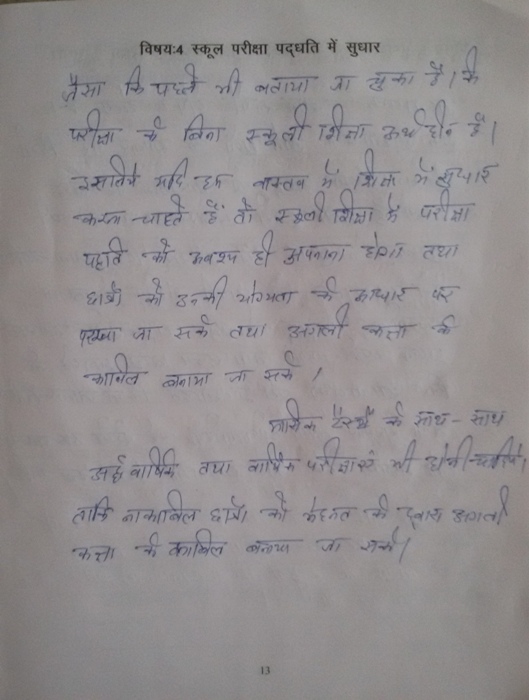 विषय:4 स्कूल परीक्षा पद्धति में सुधार
जैसा कि पहले भी बताया जा चुका है। कि
परीक्षा के बिना स्कूली शिक्षा अर्थहीन है।
इसलिये यदि हम वास्तव में शिक्षा में सुधार
करना चाहते हैं तो स्कूली शिक्षा में परीक्षा
पद्दति को अवश्य ही अपनाना होगा तथा
छात्रों को उनकी योग्यता के आधार पर
परखा जा सके तथा अगली कक्षा के
काबिल बनाया जा सके।
मासिक टैस्टों के साथ-साथ
अर्द्धवार्षिक तथा वार्षिक परीक्षाएं भी होनी चाहिये।
ताकि नाकाबिल छात्रों को मेहनत के द्वारा अगली
कक्षा के काबिल बनाया जा सके।
13